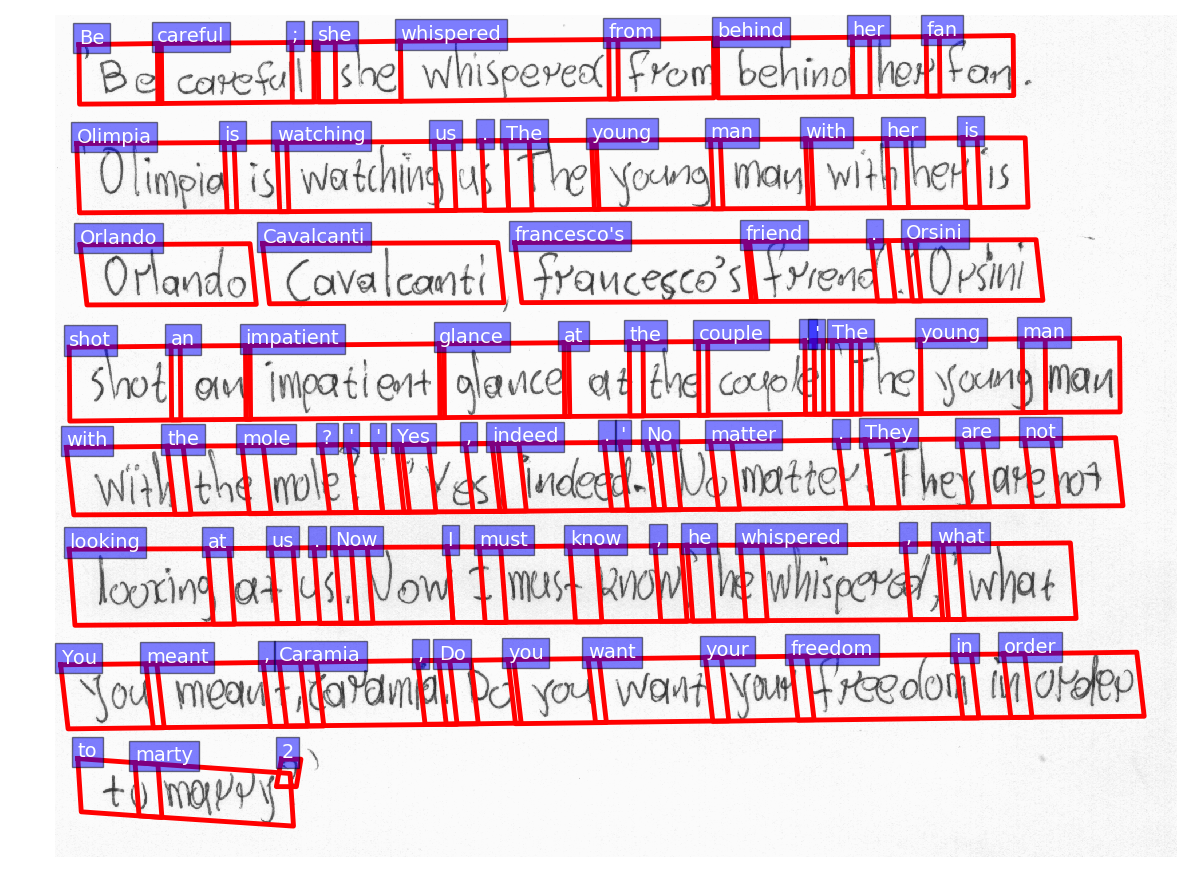 Be careful ; she whispered from behind her fan
'Be careful' she whispered from behind her fan.
Olimpia is watching us . The young man with her is
'Olimpia is watching us. The young man with her is
Orlando Cavalcanti francesco's friend . Orsini
Orlando Cavalcanti, francesco's friend.' Orsini
shot an impatient glance at the couple ' The young man
shot an impatient glance at the couple. 'The young man
with the mole ? ' ' Yes , indeed . ' No matter . They are not
with the mole?' 'Yes, indeed.' 'No matter. They are not
looking at us . Now I must know , he whispered , what
looking at us. Now I must know,' he whispered, 'what
You meant , Caramia , Do you want your freedom in order
you meant, caramia. Do you want your freedom in order
to marty 2
to marry?'